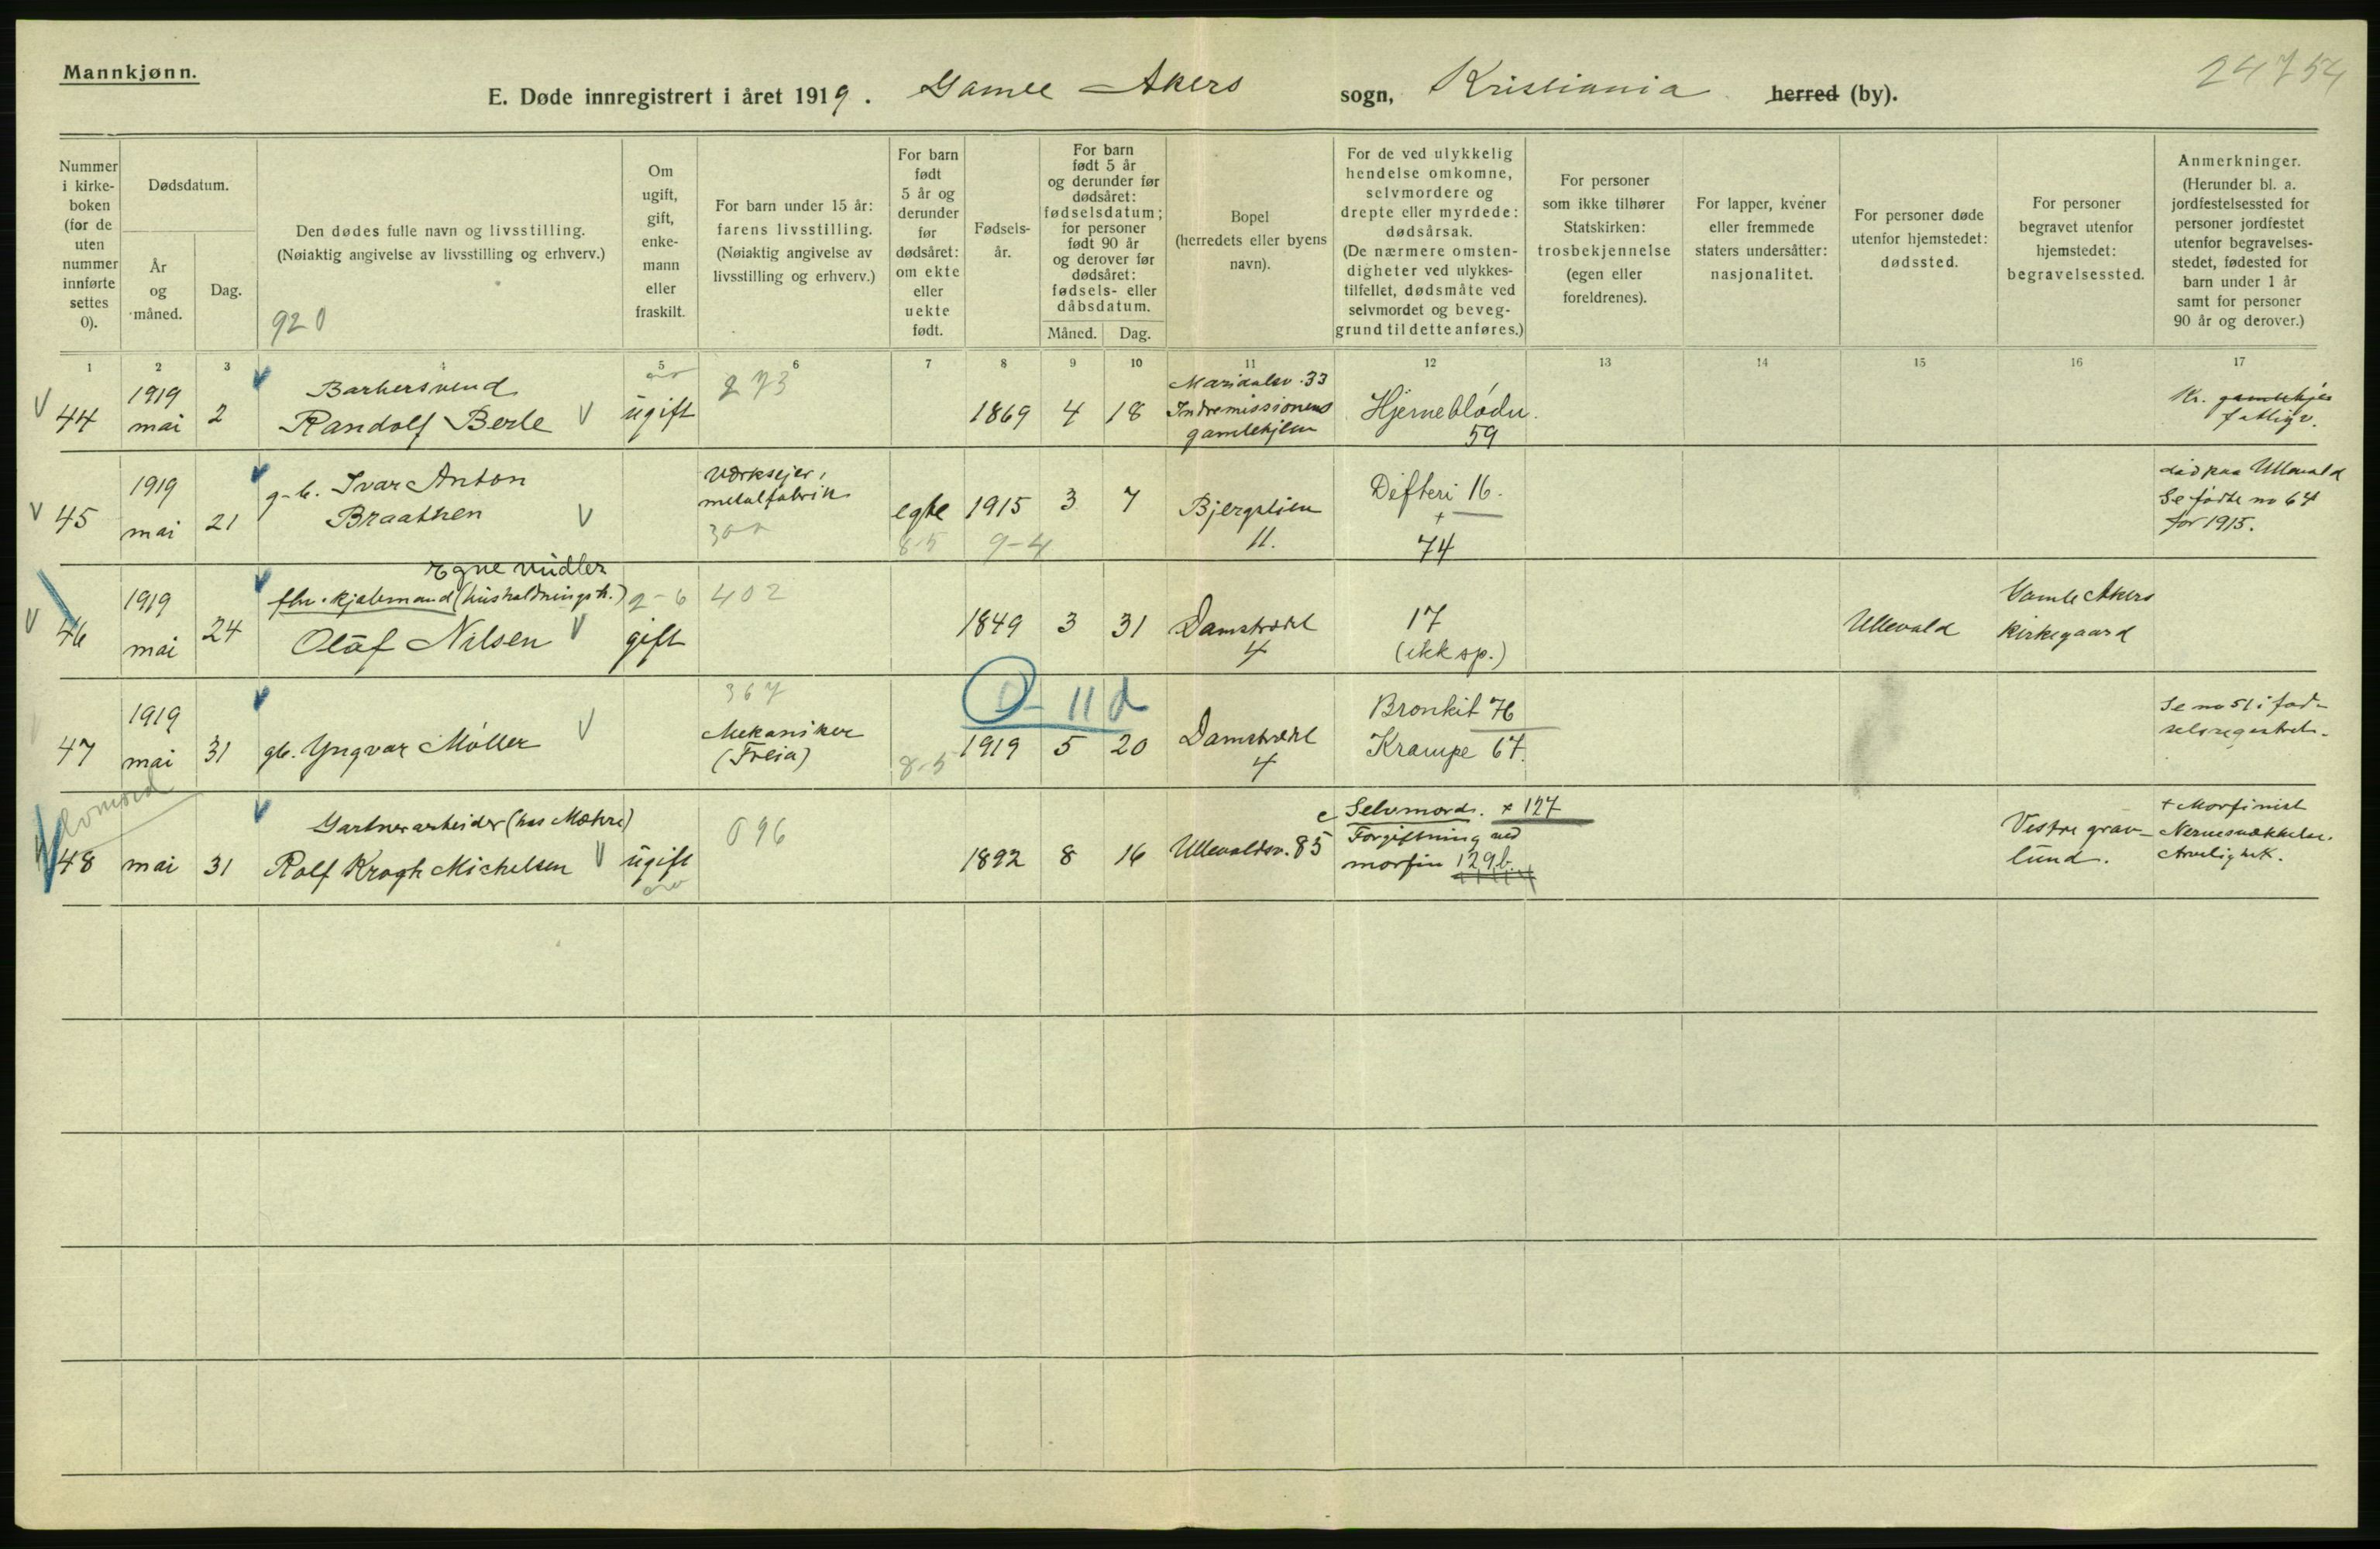 Mannkjønn.
24754
E. Døde innregistrert i året 1919. Gamle Akers sogn, Kristiania herred (by).
Nummer i kirkeboken (for de uten nummer innførte settes 0).
Dødsdatum.
År og måned.
Dag.
Den dødes fulle navn og livsstilling.
(Nøiaktig angivelse av livsstilling og erhverv.)
920
Om ugift, gift, enkemann eller fraskilt.
For barn under 15 år: farens livsstilling.
(Nøiaktig angivelse av livsstilling og erhverv.)
For barn født 5 år og derunder før dødsåret: om ekte eller uekte født.
Fødselsår.
For barn født 5 år og derunder før dødsåret: fødselsdatum; for personer født 90 år og derover før dødsåret: fødsels- eller dåbsdatum.
Måned. Dag.
Bopel (herredets eller byens navn).
For de ved ulykkelig hendelse omkomne, selvmordere og drepte eller myrdede: dødsårsak.
(De nærmere omstendigheter ved ulykkestilfellet, dødsmåte ved selvmordet og beveggrund til dette anføres.)
For personer som ikke tilhører Statskirken: trosbekjennelse (egen eller foreldrenes).
For lapper, kvener eller fremmede staters undersåtter: nasjonalitet.
For personer døde utenfor hjemstedet: dødssted.
For personer begravet utenfor hjemstedet: begravelsessted.
Anmerkninger.
(Herunder bl. a. jordfestelsessted for personer jordfestet utenfor begravelsesstedet, fødested for barn under 1 år samt for personer 90 år og derover.)
1 2 3 4 5 6 7 8 9 10 11 12 13 14 15 16 17
V 44 1919 mai 2 Barbersvend
Randolf Berle V ugift 273 1869 4 18 Maridalsv. 33
Indremissionens
gamlehjem Hjerneblødn.
59 Kr. gamlehjem
fattigv.
V 45 1919 mai 21 g.b. Ivar Anton
Braathen V Værksejer,
metalfabrik
300 egte 8-5 1915 3 7 9-4 Bjergstien
11. Difteri 16.
+
74 død paa Ullevald
Se fødte no 64
for 1915.
V 46 1919 mai 24 Egne midler
fhv. kjøbmand (husholdningsh.)
Olaf Nilsen V 2-6 gift 402 1849 3 31 Damstrædet
4 17
(ikk sp.) Ullevald Gamle Akers
kirkegaard
47 1919 mai 31 gb. Yngvar Møller V 367
Mekaniker
(Freia) 8-5 0-11 d
1919 5 20 Damstrædet
4 Bronkit 76
Krampe 67. Se no 51 i fød-
selsregistret.
Selvmord
48 mai 31 Gartnerarbeider (hos Mæhre)
Rolf Krogh Michelsen V ugift 096 1892 8 16 Ullevaldsv. 85 Selvmord. + 127
Forgiftning ved
morfin 129b. Vestre grav-
lund. + Morfinist
Nervesvækkelse.
Arvelighet.